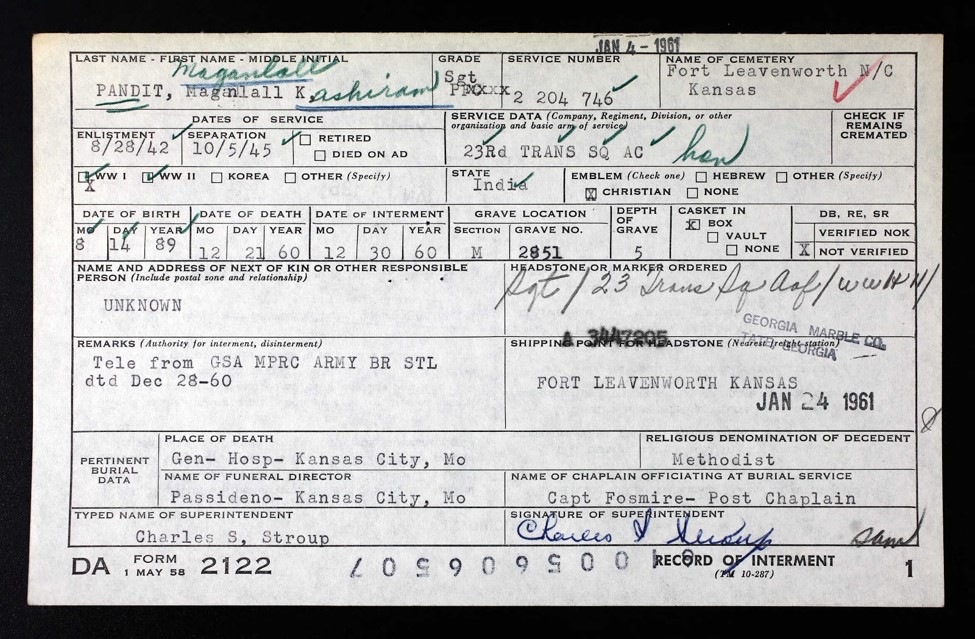 JAN 4 - 1961
LAST NAME - FIRST NAME - MIDDLE INITIAL
Maganlall
PANDIT, Maganlall K.ashiram
GRADE
Sgt
SERVICE NUMBER
2 204 746
NAME OF CEMETERY
Fort Leavenworth N/C
Kansas
DATES OF SERVICE
ENLISTMENT
8/28/42
SEPARATION
10/5/45
RETIRED
DIED ON AD
SERVICE DATA (Company, Regiment, Division, or other
organization and basic arm of service)
23Rd TRANS SQ AC hon
CHECK IF
REMAINS
CREMATED
X WW I WW II KOREA OTHER (Specify)
STATE
India
EMBLEM (Check one) HEBREW OTHER (Specify)
X CHRISTIAN NONE
DATE OF BIRTH
MO DAY YEAR
8 14 89
DATE OF DEATH
MO DAY YEAR
12 21 60
DATE OF INTERMENT
MO DAY YEAR
12 30 60
GRAVE LOCATION
SECTION GRAVE NO.
M 2851
DEPTH
OF
GRAVE
5
CASKET IN
X BOX
VAULT
NONE
DB, RE, SR
VERIFIED NOK
X NOT VERIFIED
NAME AND ADDRESS OF NEXT OF KIN OR OTHER RESPONSIBLE
PERSON (Include postal zone and relationship)
UNKNOWN
HEADSTONE OR MARKER ORDERED
Sgt / 23 Trans Sq Aaf / WW II /
A 3447205
GEORGIA MARBLE CO.
TATE, GEORGIA
REMARKS (Authority for interment, disinterment)
Tele from GSA MPRC ARMY BR STL
dtd Dec 28-60
SHIPPING POINT FOR HEADSTONE (Nearest freight station)
FORT LEAVENWORTH KANSAS
JAN 24 1961
PERTINENT
BURIAL
DATA
PLACE OF DEATH
Gen- Hosp- Kansas City, Mo
RELIGIOUS DENOMINATION OF DECEDENT
Methodist
NAME OF FUNERAL DIRECTOR
Passideno- Kansas City, Mo
NAME OF CHAPLAIN OFFICIATING AT BURIAL SERVICE
Capt Fosmire- Post Chaplain
TYPED NAME OF SUPERINTENDENT
Charles S, Stroup
SIGNATURE OF SUPERINTENDENT
Charles S Stroup
DA FORM 2122
1 MAY 58
RECORD OF INTERMENT
(TM 10-287)
1